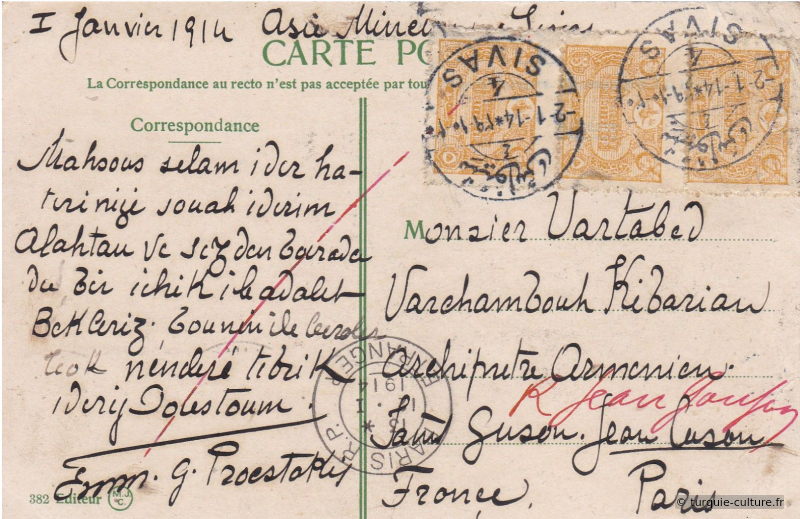 I Janvier 1914 Asie Mineure
CARTE PO
La Correspondance au recto n'est pas acceptée par tou
Correspondance
Mahsous selam ider ha-
tirinizi souah iderim
Alahtan ve sizden bourada
du bir ichik ile adalet
Bekleriz. bounou ile beraber
tcok nendéré tebrik
iderij Dolestoum.
Emm. G. Proestakis
382 Editeur M.J.C.
SIVAS
4
2-1-14
SIVAS
4
2-1-14
Monsier Vartabed
Varchambouh Kibarian
Archipretre Armenien.
R Jean Goujon
Jean Cuson
France, Paris
PARIS R.P. ETRANGER
1914
© turquie-culture.fr